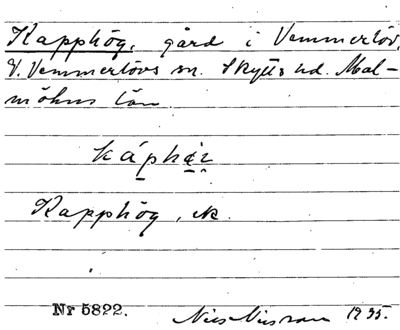 Kapphög, gård i Vemmerlöv,
V. Vemmerlövs sn. Skytts hd. Mal-
möhus län
Kapphög, ek.
Nr 5822. Nils Nilsson 1935.